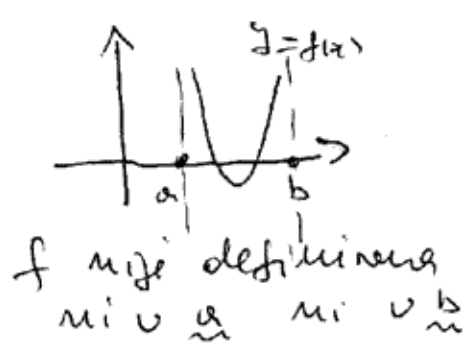 y=f(x)
a b
f nije definirana
ni u a ni u b